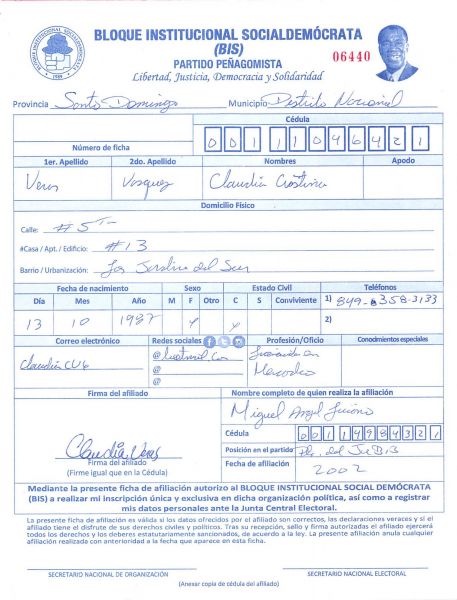 BLOQUE INSTITUCIONAL SOCIALDEMÓCRATA
(BIS)
PARTIDO PEÑAGOMISTA
Libertad, Justicia, Democracia y Solidaridad
06440
BLOQUE INSTITUCIONAL SOCIALDEMOCRATA
Provincia Santo Domingo Municipio Distrito Nacional
Cédula
Número de ficha 00111096421
1er. Apellido 2do. Apellido Nombres Apodo
Veras Vasquez Claudia Cristina
Domicilio Físico
Calle: # 5
#Casa / Apt. / Edificio: #13
Barrio / Urbanización: Los Jardines del Sur
Fecha de nacimiento Sexo Estado Civil Teléfonos
Día Mes Año M F Otro C S Conviviente 1) 849-358-3133
13 10 1987 2)
Correo electrónico Redes sociales Profesión/Oficio Conodmientos especiales
@
@
@
Mercadeo
Firma del afiliado Nombre completo de quien realiza la afiliación
Miguel Angel
Cédula 00114984321
Claudia Veras
Posición en el partido
Firma del afiliado
(Firme igual que en la Cédula)
Fecha de afiliación 2002
Mediante la presente ficha de afiliación autorizo al BLOQUE INSTITUCIONAL SOCIAL DEMÓCRATA
(BIS) a realizar mi inscripción única y exclusiva en dicha organización política, así como a registrar
mis datos personales ante la Junta Central Electoral.
La presente ficha de afiliación es válida si los datos ofrecidos por el afiliado son correctos, las declaraciones veraces y si el
afiliado tiene el disfrute de sus derechos civiles y políticos. Tras su recepción, sello y firma autorizadas el afiliado ejercerá
todos los derechos y los deberes estatutariamente sancionados, de acuerdo a la ley. La presente afiliación anula cualquier
afiliación realizada con anterioridad a la fecha que aparece en esta ficha.
SECRETARIO NACIONAL DE ORGANIZACIÓN SECRETARIO NACIONAL ELECTORAL
(Anexar copia de cédula del afiliado)